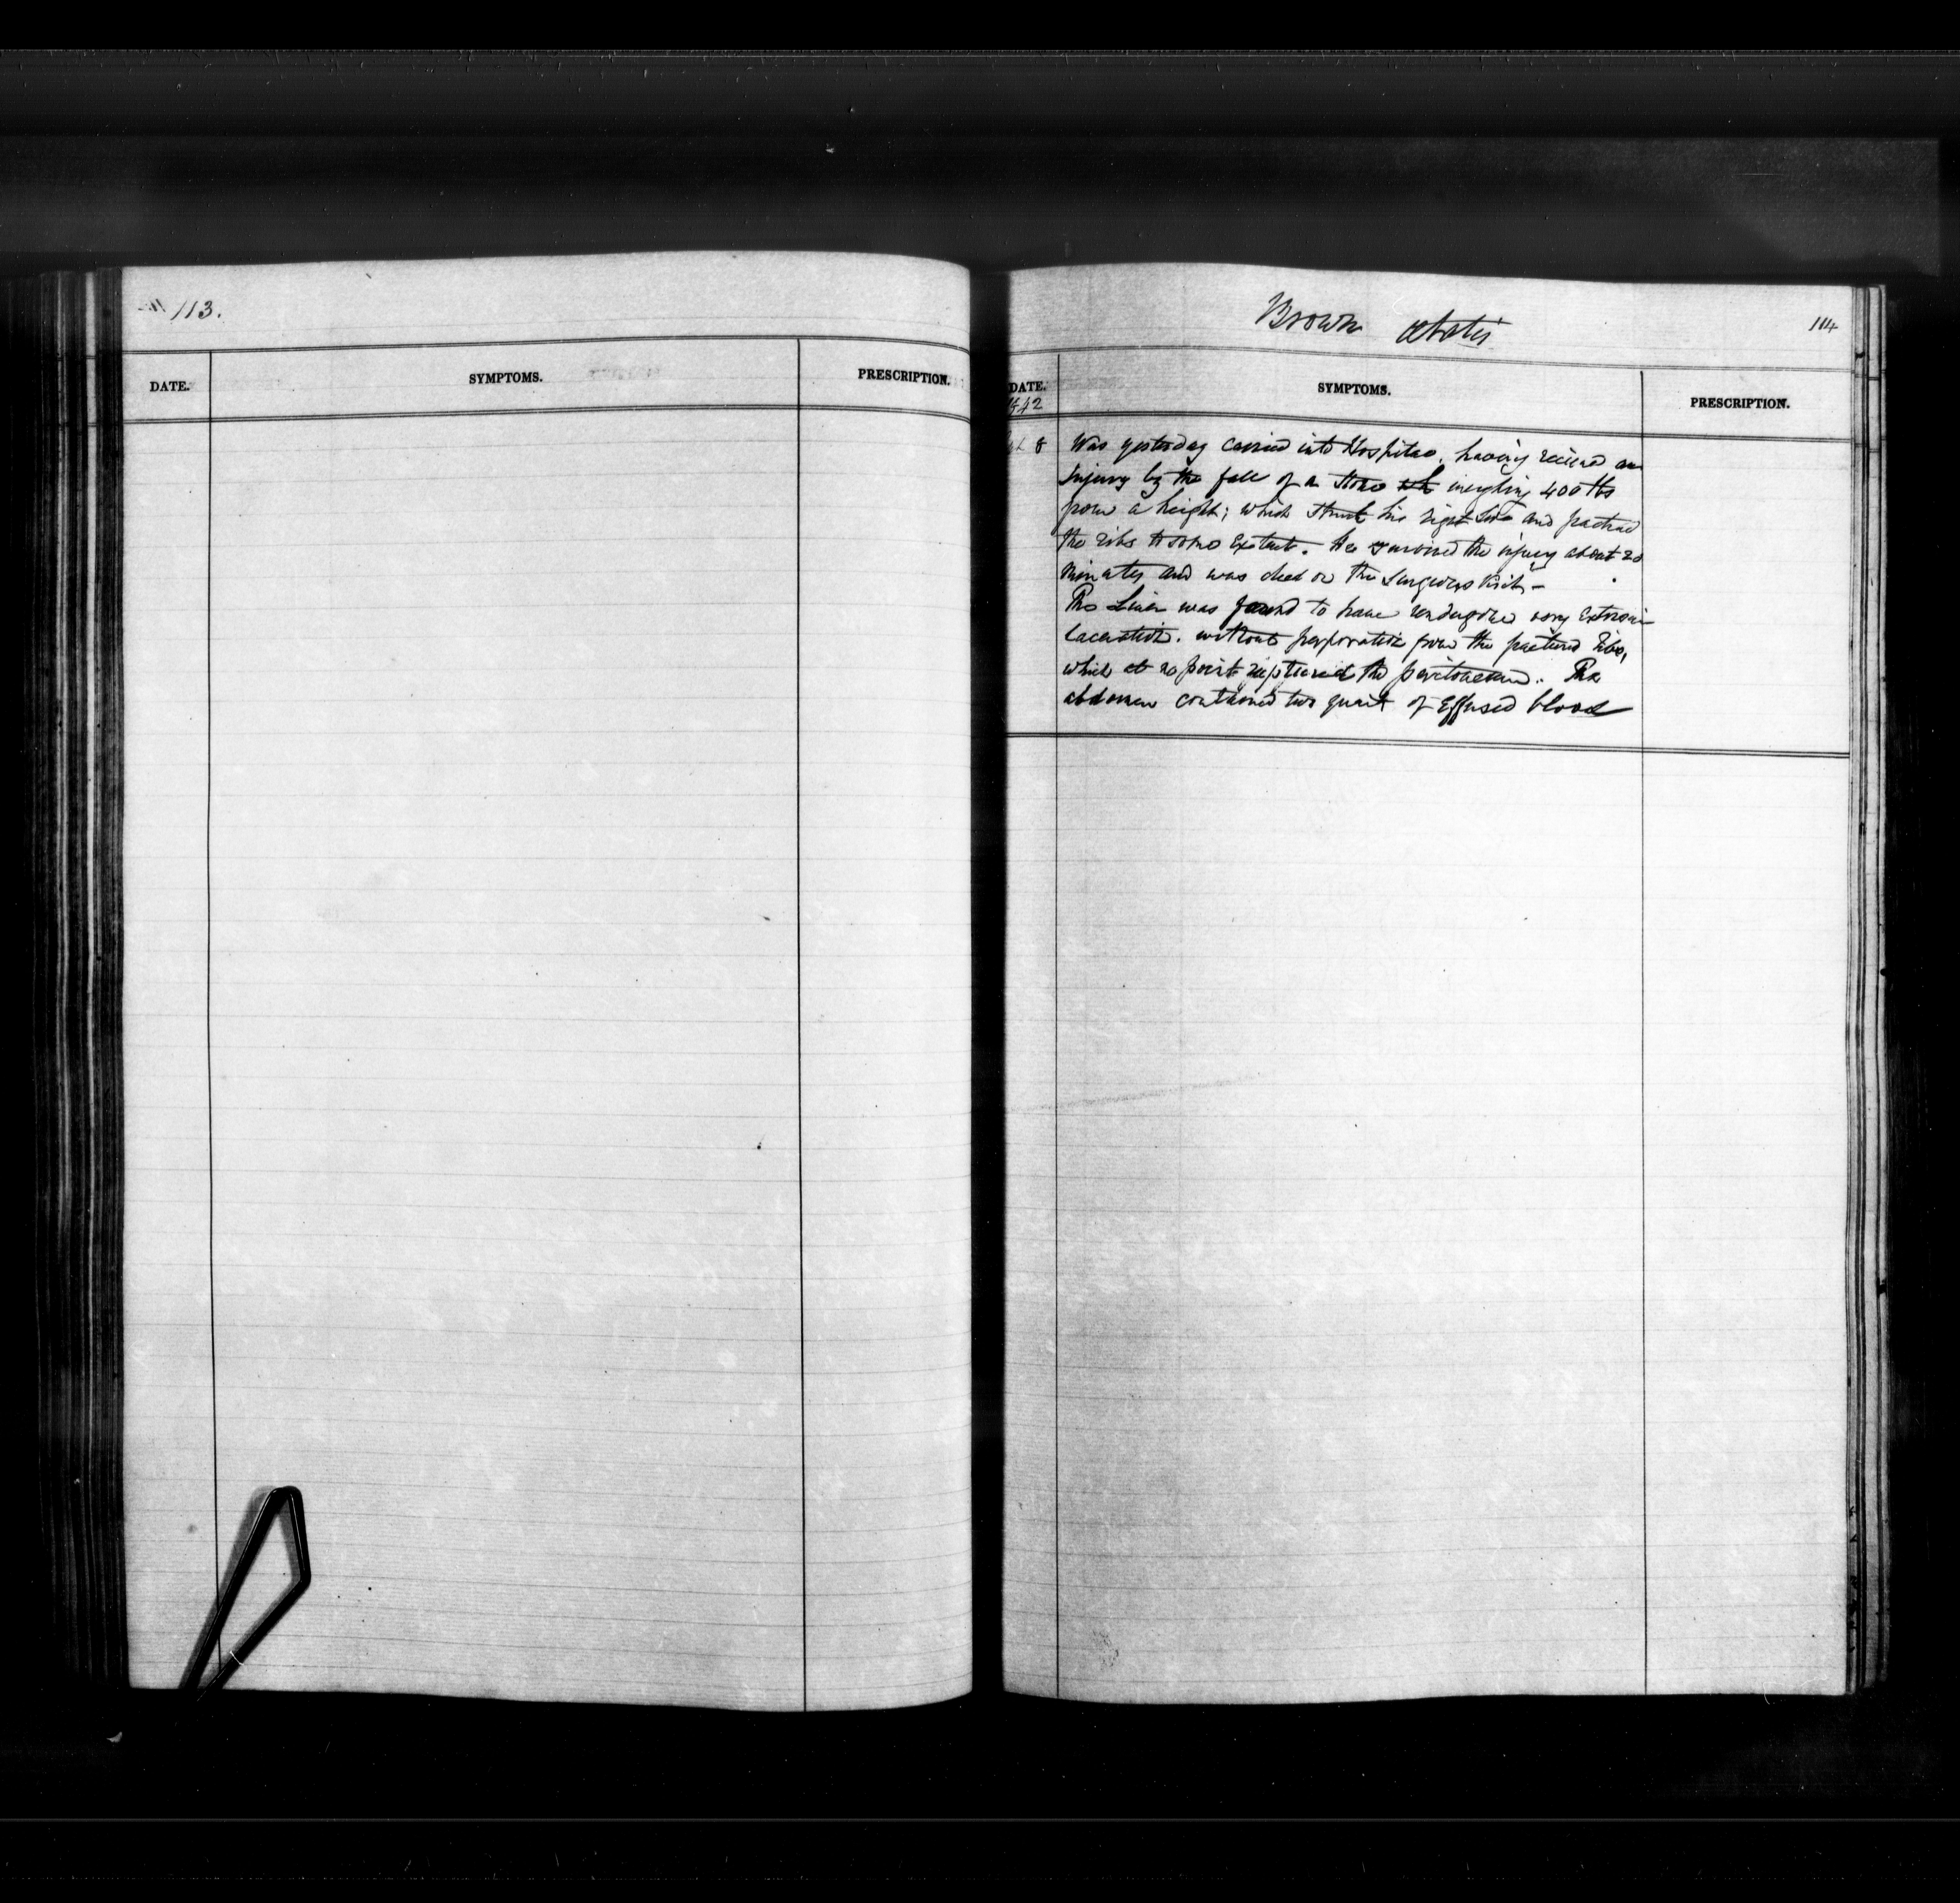 113.
DATE. SYMPTOMS. PRESCRIPTION.
Brown 114
DATE. SYMPTOMS. PRESCRIPTION.
1842
8 Was yesterday carried into Hospital, having received an
Injury by the fall of a stone weighing 400 lbs
from a height; which struck his right side and fractured
the ribs to some Extent. He survived the injury about 20
minutes and was dead on the Surgeons Visit –
The Liver was found to have undergone very Extensive
laceration. without perforation from the fractured Ribs,
which at no point ruptured the peritoneum. The
abdomen contained two quarts of Effused blood